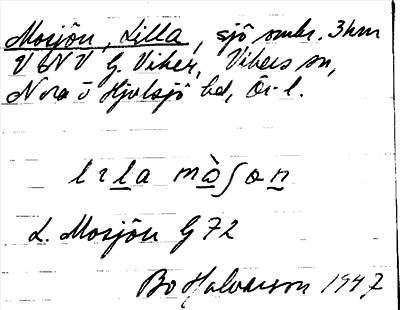 Mosjön, Lilla, sjö omkr. 3 km
V NV G. Viker, Vikers sn,
Nora o Hjulsjö bd, Ör. l.
lɩla mòʃon
L. Mosjön G 72
Bo Halvarson 1947